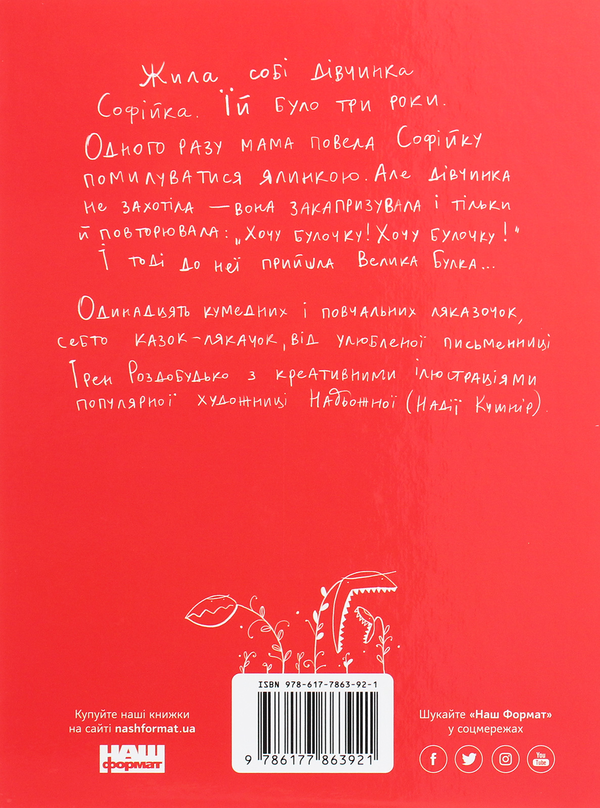 Жила собі дівчинка
Софійка. Їй було три роки.
Одного разу мама повела Софійку
помилуватися ялинкою. Але дівчинка
не захотіла — вона закапризувала і тільки
й повторювала: „Хочу булочку! Хочу булочку!“
І тоді до неї прийшла Велика Булка...
Одинадцять кумедних і повчальних ляказочок,
себто казок-лякачок, від улюбленої письменниці
Ірен Роздобудько з креативними ілюстраціями
популярної художниці Надьожної (Надії Кушнір).
ISBN 978-617-7863-92-1
9 786177 863921
Купуйте наші книжки
на сайті nashformat.ua
НАШ
формат
Шукайте «Наш Формат»
у соцмережах
You
Tube